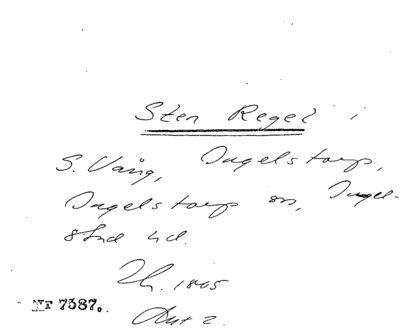 Sten Regel i
S. Vång, Ingelstorp,
Ingelstorps sn, Ingel-
stad hd.
Th. 1805
Nr 7387.